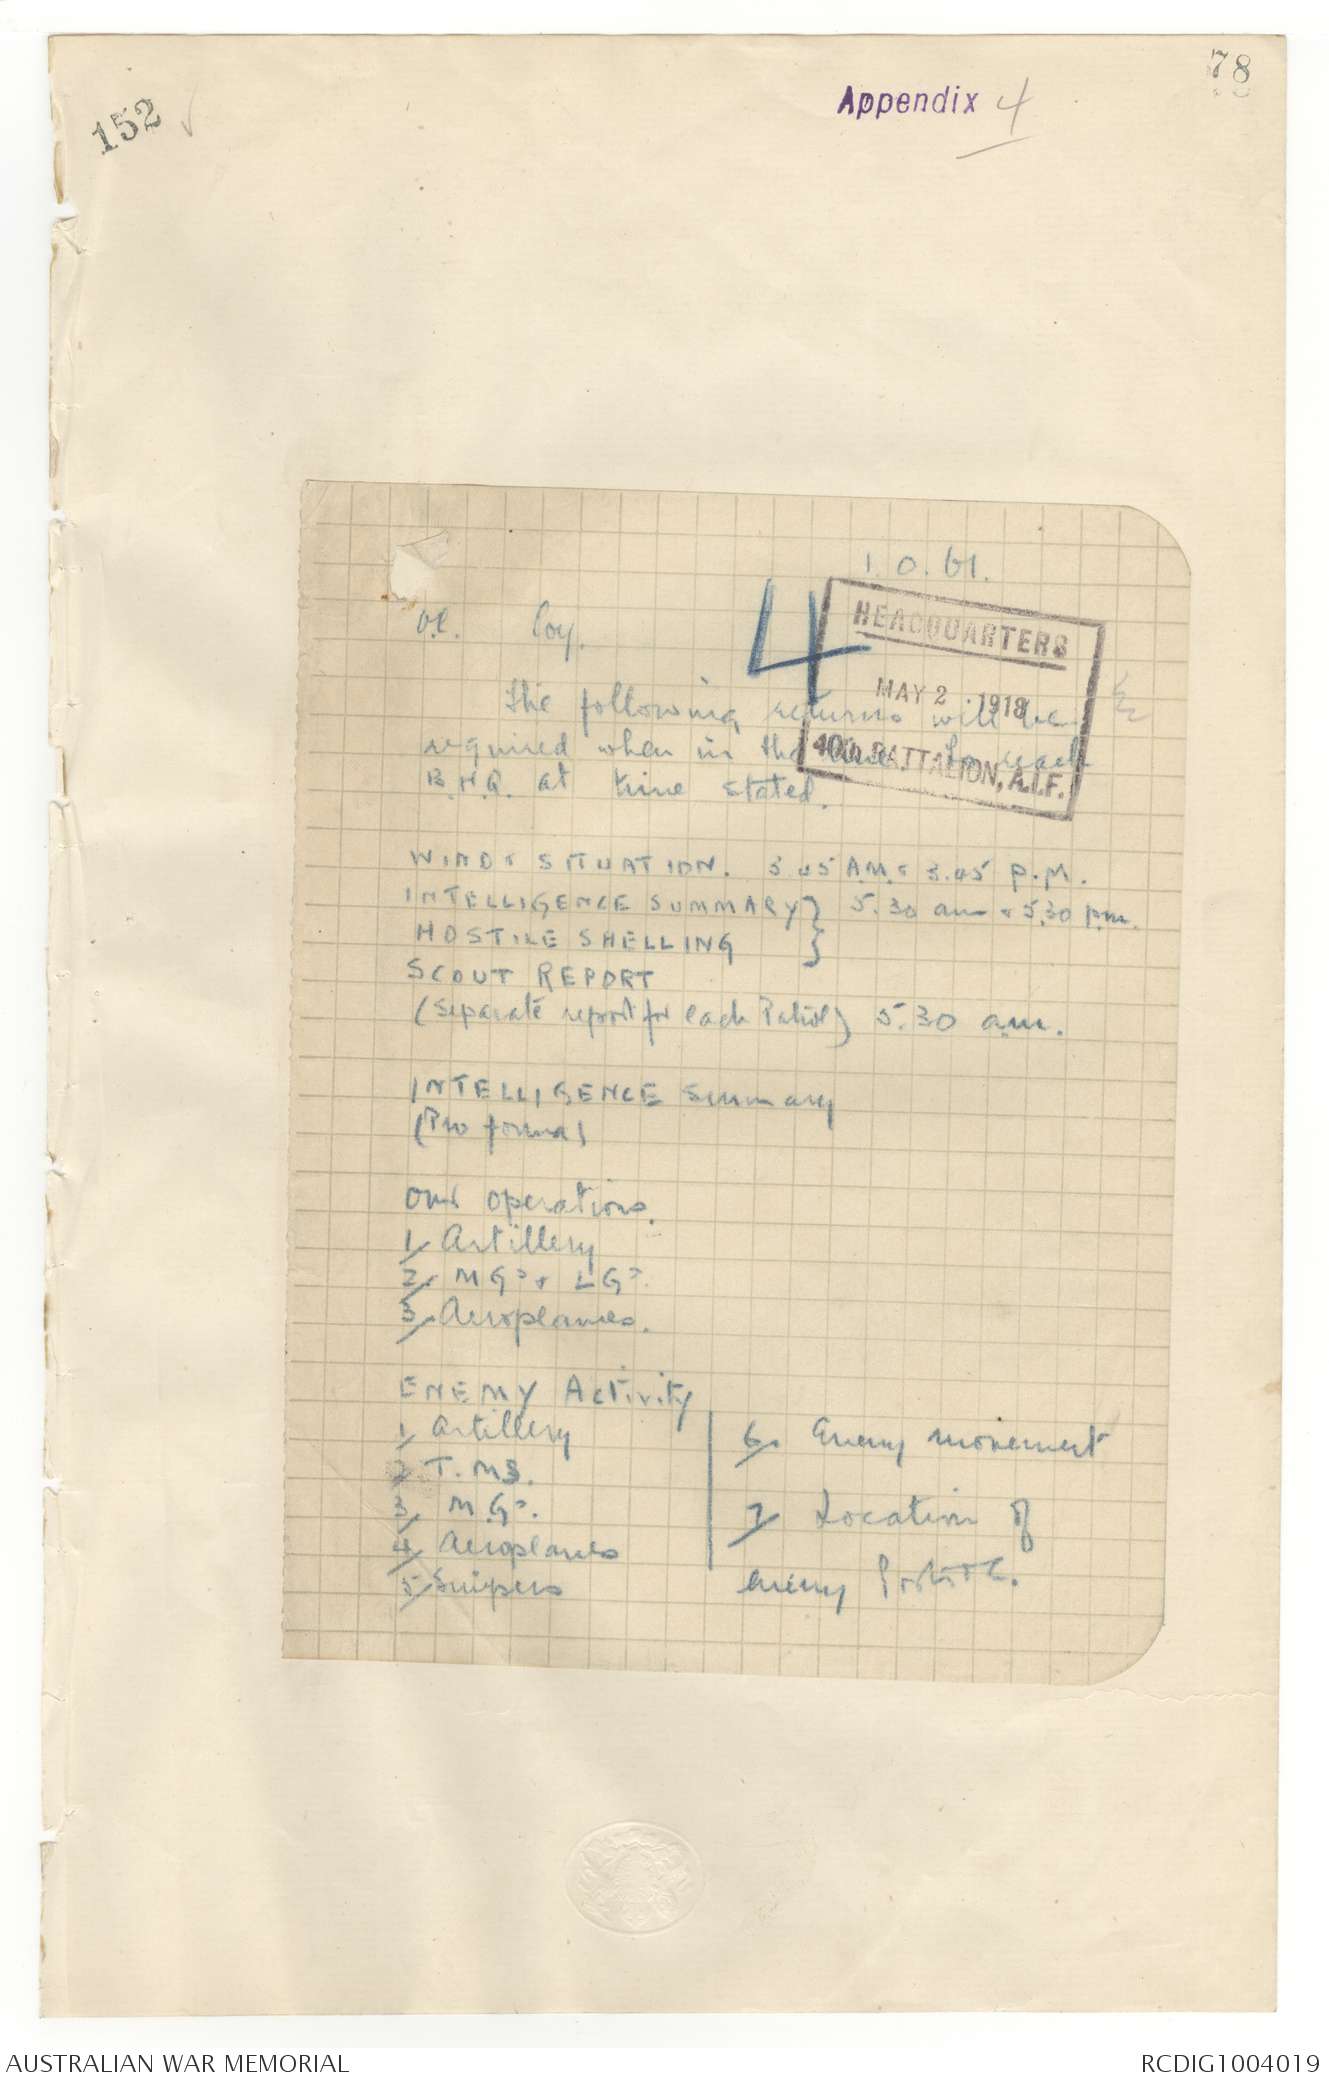 78
152
Appendix 4
I. O. 61.
O.C. Coy.
4
HEADQUARTERS
MAY 2 1918
40th BATTALION, A.I.F.
The following returns will be
required when in the line. To reach
B.H.Q. at time stated.
WIND & SITUATION. 3.45 A.M. & 3.45 P.M.
INTELLIGENCE SUMMARY } 5.30 am & 5.30 pm.
HOSTILE SHELLING }
SCOUT REPORT
(Separate report for each Patrol) 5.30 am.
INTELLIGENCE Summary
(Pro forma)
Our operations.
1/ Artillery
2/. MGs & LGs.
3/. Aeroplanes.
ENEMY Activity
1/ Artillery
2/ T.MS.
3/ M.Gs.
4/ Aeroplanes
5/ Snipers
6/. Enemy movement
7/ Location of
enemy
AUSTRALIAN WAR MEMORIAL
RCDIG1004019